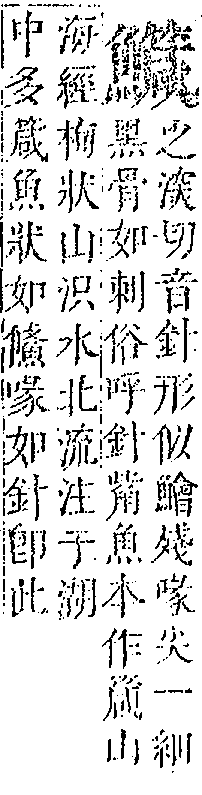 鱵之深切音針形似鱠殘喙尖一細
黑骨如刺俗呼針觜魚本作箴山
海經栒狀山沢水北流注于湖
中多箴魚狀如儵喙如針卽此